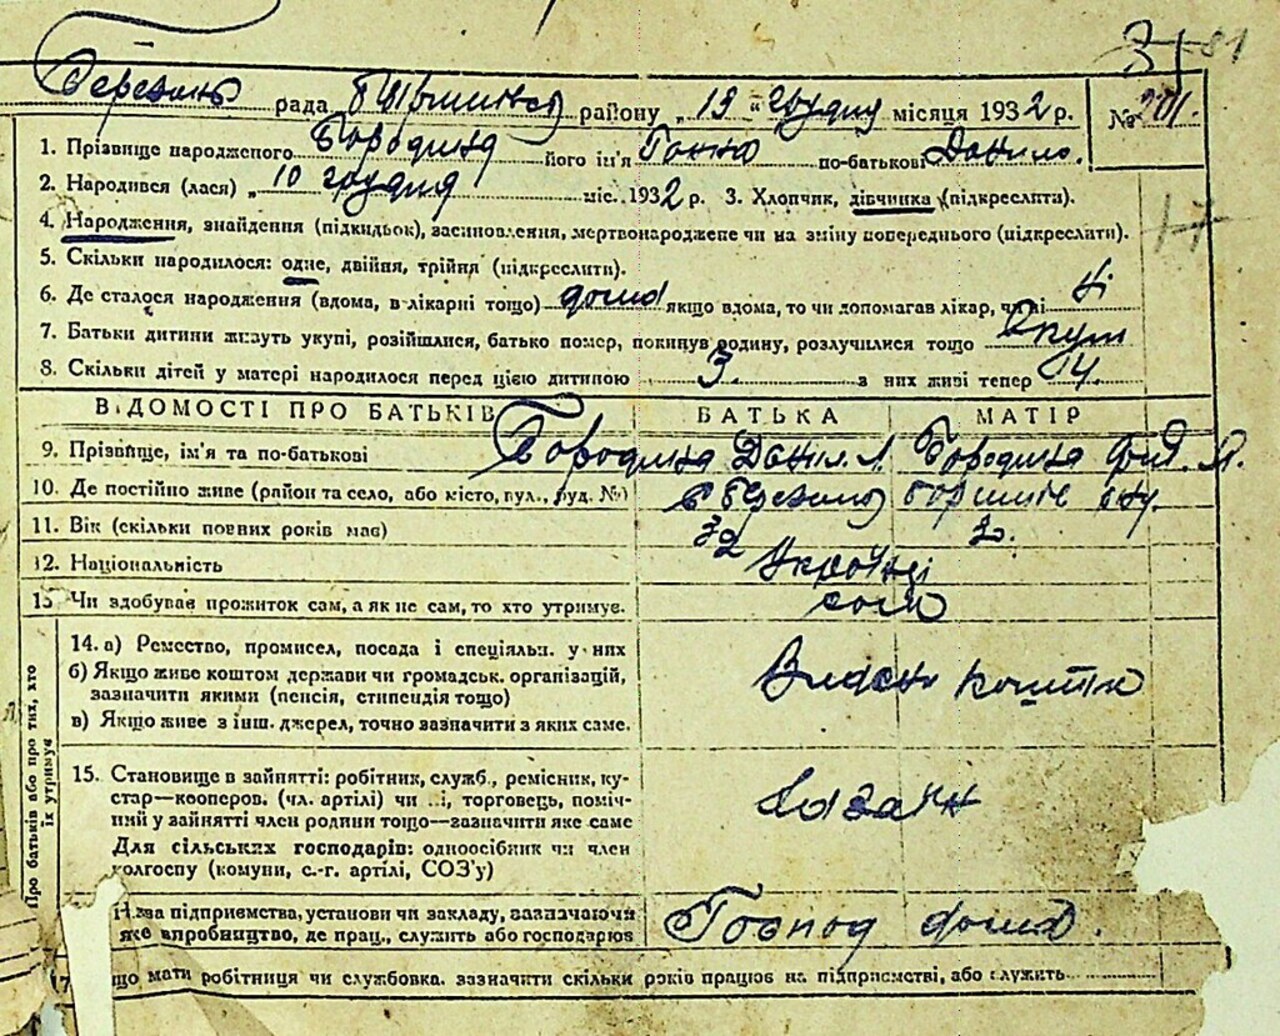 31 81
рада району „ 19 “ грудня місяця 1932 р. № 201.
1. Прізвище народженого Бородина його ім'я Ганна по-батькові Данило.
2. Народився (лася) „ 10 грудня міс. 1932 р. 3. Хлопчик, дівчинка (підкреслити).
17
4. Народження, знайдення (підкидьок), засиновлення, мертвонароджене чи на зміну попереднього (підкреслити).
5. Скільки народилося: одне, двійня, трійня (підкреслити).
6. Де сталося народження (вдома, в лікарні тощо) дома якщо вдома, то чи допомагав лікар, чи ні ні
7. Батьки дитини живуть укупі, розійшлися, батько помер, покинув родину, розлучилися тощо Вкуп
8. Скільки дітей у матері народилося перед цією дитиною 3. з них живі тепер 4.
ВІДОМОСТІ ПРО БАТЬКІВ БАТЬКА МАТІР
9. Прізвище, ім'я та по-батькові Бородина Данил. Л. Бородина
10. Де постійно живе (район та село, або місто, вул., буд. №)
11. Вік (скільки повних років має) 32
12. Національність Українці
13 Чи здобував прожиток сам, а як не сам, то хто утримує. сам
Про батьків або про тих, хто їх утримує
14. а) Ремество, промисел, посада і спеціяльн. у них
б) Якщо живе коштом держави чи громадськ. організацій,
зазначити якими (пенсія, стипендія тощо)
в) Якщо живе з інш. джерел, точно зазначити з яких саме.
кошти
15. Становище в зайнятті: робітник, служб., ремісник, ку-
стар—кооперов. (чл. артілі) чи ні, торговець, поміч-
ний у зайнятті член родини тощо—зазначити яке саме
Для сільських господарів: одноосібник чи член
колгоспу (комуни, с.-г. артілі, СОЗ'у)
Хазаїн
Назва підприємства, установи чи закладу, зазначаючи
яке виробництво, де прац., служить або господарює Господ дома.
17 що мати робітниця чи службовка. зазначити скільки років працює на підприємстві, або служить